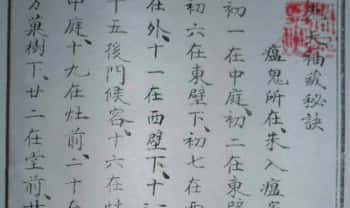 天福藏秘訣
瘟鬼所在、未入瘟
初一在中庭、初二在東壁
初六在東壁下、初七在西
在外、十一在西壁下、十
十五後門候客、十六在
中庭、十九在灶前、二十在
菓樹下、廿二在堂前、廿